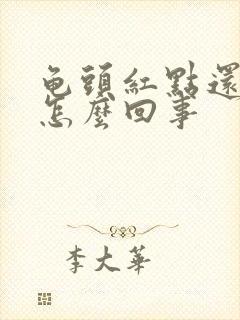 龟頭紅點還
怎麼回事
李大華